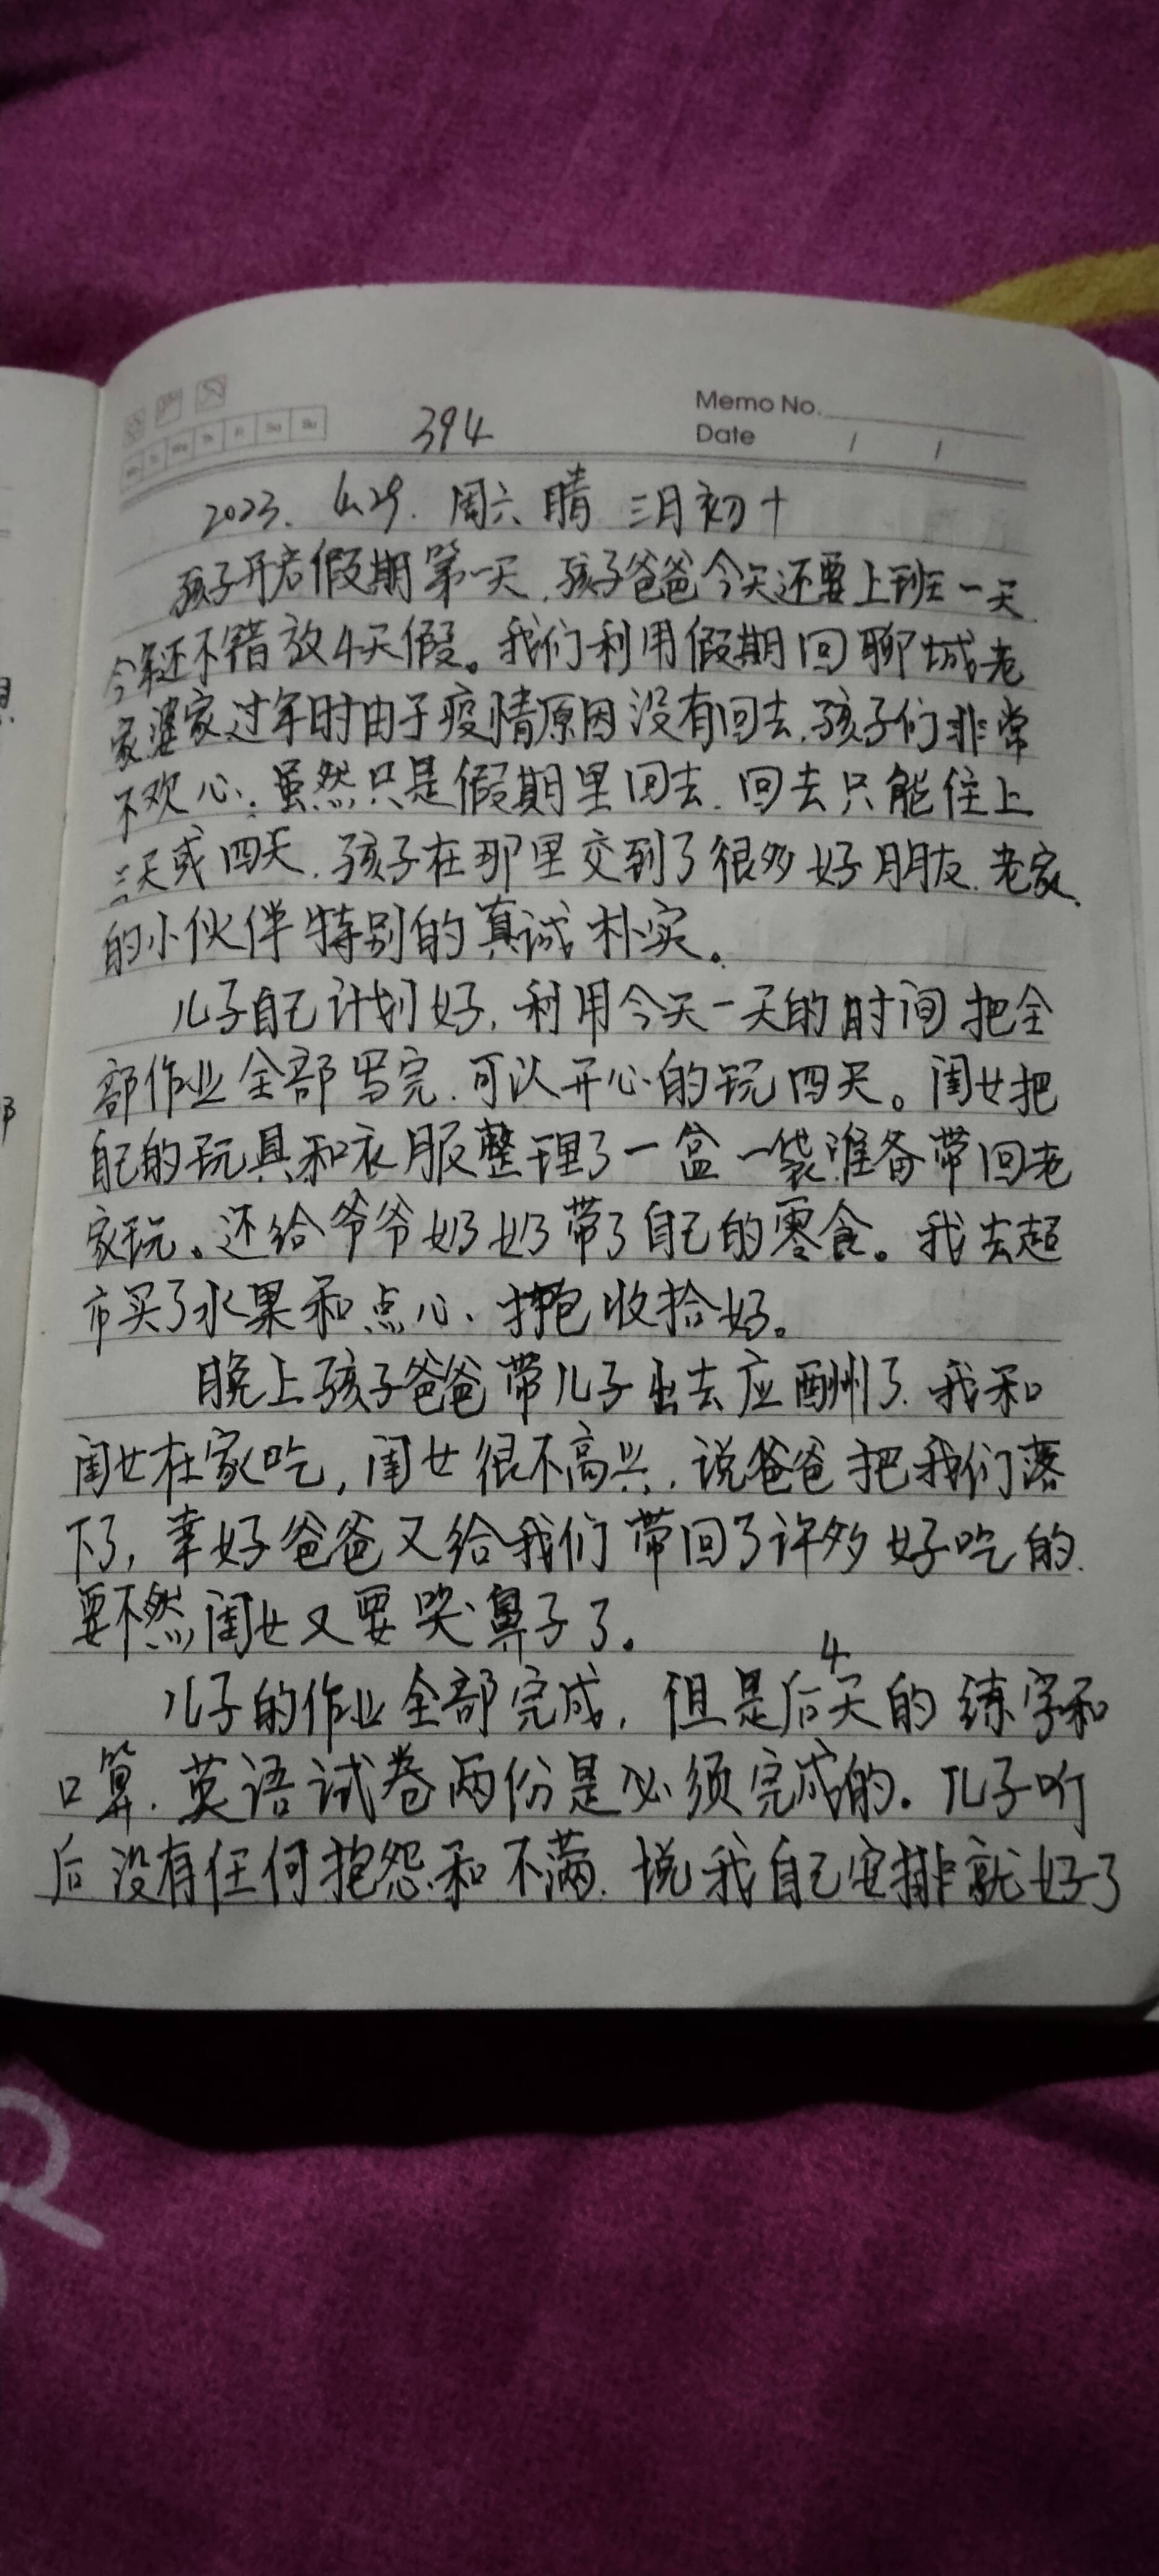 Memo No.
394
Date / /
2023. 4.29. 周六 晴 三月初十
孩子开启假期第一天.孩子爸爸今天还要上班一天
今年还不错放4天假。我们利用假期回聊城老
家婆家.过年时由于疫情原因没有回去.孩子们非常
不欢心.虽然只是假期里回去.回去只能住上
三天或四天.孩子在那里交到了很多好朋友.老家
的小伙伴特别的真诚朴实。
儿子自己计划好,利用今天一天的时间把全
部作业全部写完.可以开心的玩四天。闺女把
自己的玩具和衣服整理了一盆一袋准备带回老
家玩。还给爷爷奶奶带了自己的零食。我去超
市买了水果和点心、打包收拾好。
晚上孩子爸爸带儿子出去应酬了.我和
闺女在家吃,闺女很不高兴.说爸爸把我们落
下了,幸好爸爸又给我们带回了许多好吃的.
要不然闺女又要哭鼻子了。
儿子的作业全部完成,但是后4天的练字和
口算.英语试卷两份是必须完成的。儿子听
后没有任何抱怨和不满.说我自己安排就好了